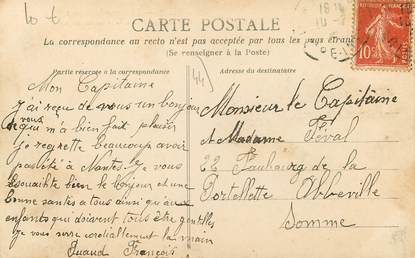 10 €
CARTE POSTALE
La correspondance au recto n'est pas acceptée par tous les pays étrangers
(Se renseigner à la Poste)
Partie réservée à la correspondance
Adresse du destinataire
(44)
Mon Capitaine
J'ai reçu de vous un bonjour
vous
qui m'a bien fait plaisir
Je regrette beaucoup avoir
à Nantes Je vous
Souhaite bien le bonjour et une
bonne santés a tous ainsi qu'aux
enfants qui doivent tous être gentilles
Je vous serre cordiallement la main
François
Monsieur le Capitaine
et Madame Féval
22 Faubourg de la
Portellette Abbeville
Somme
10